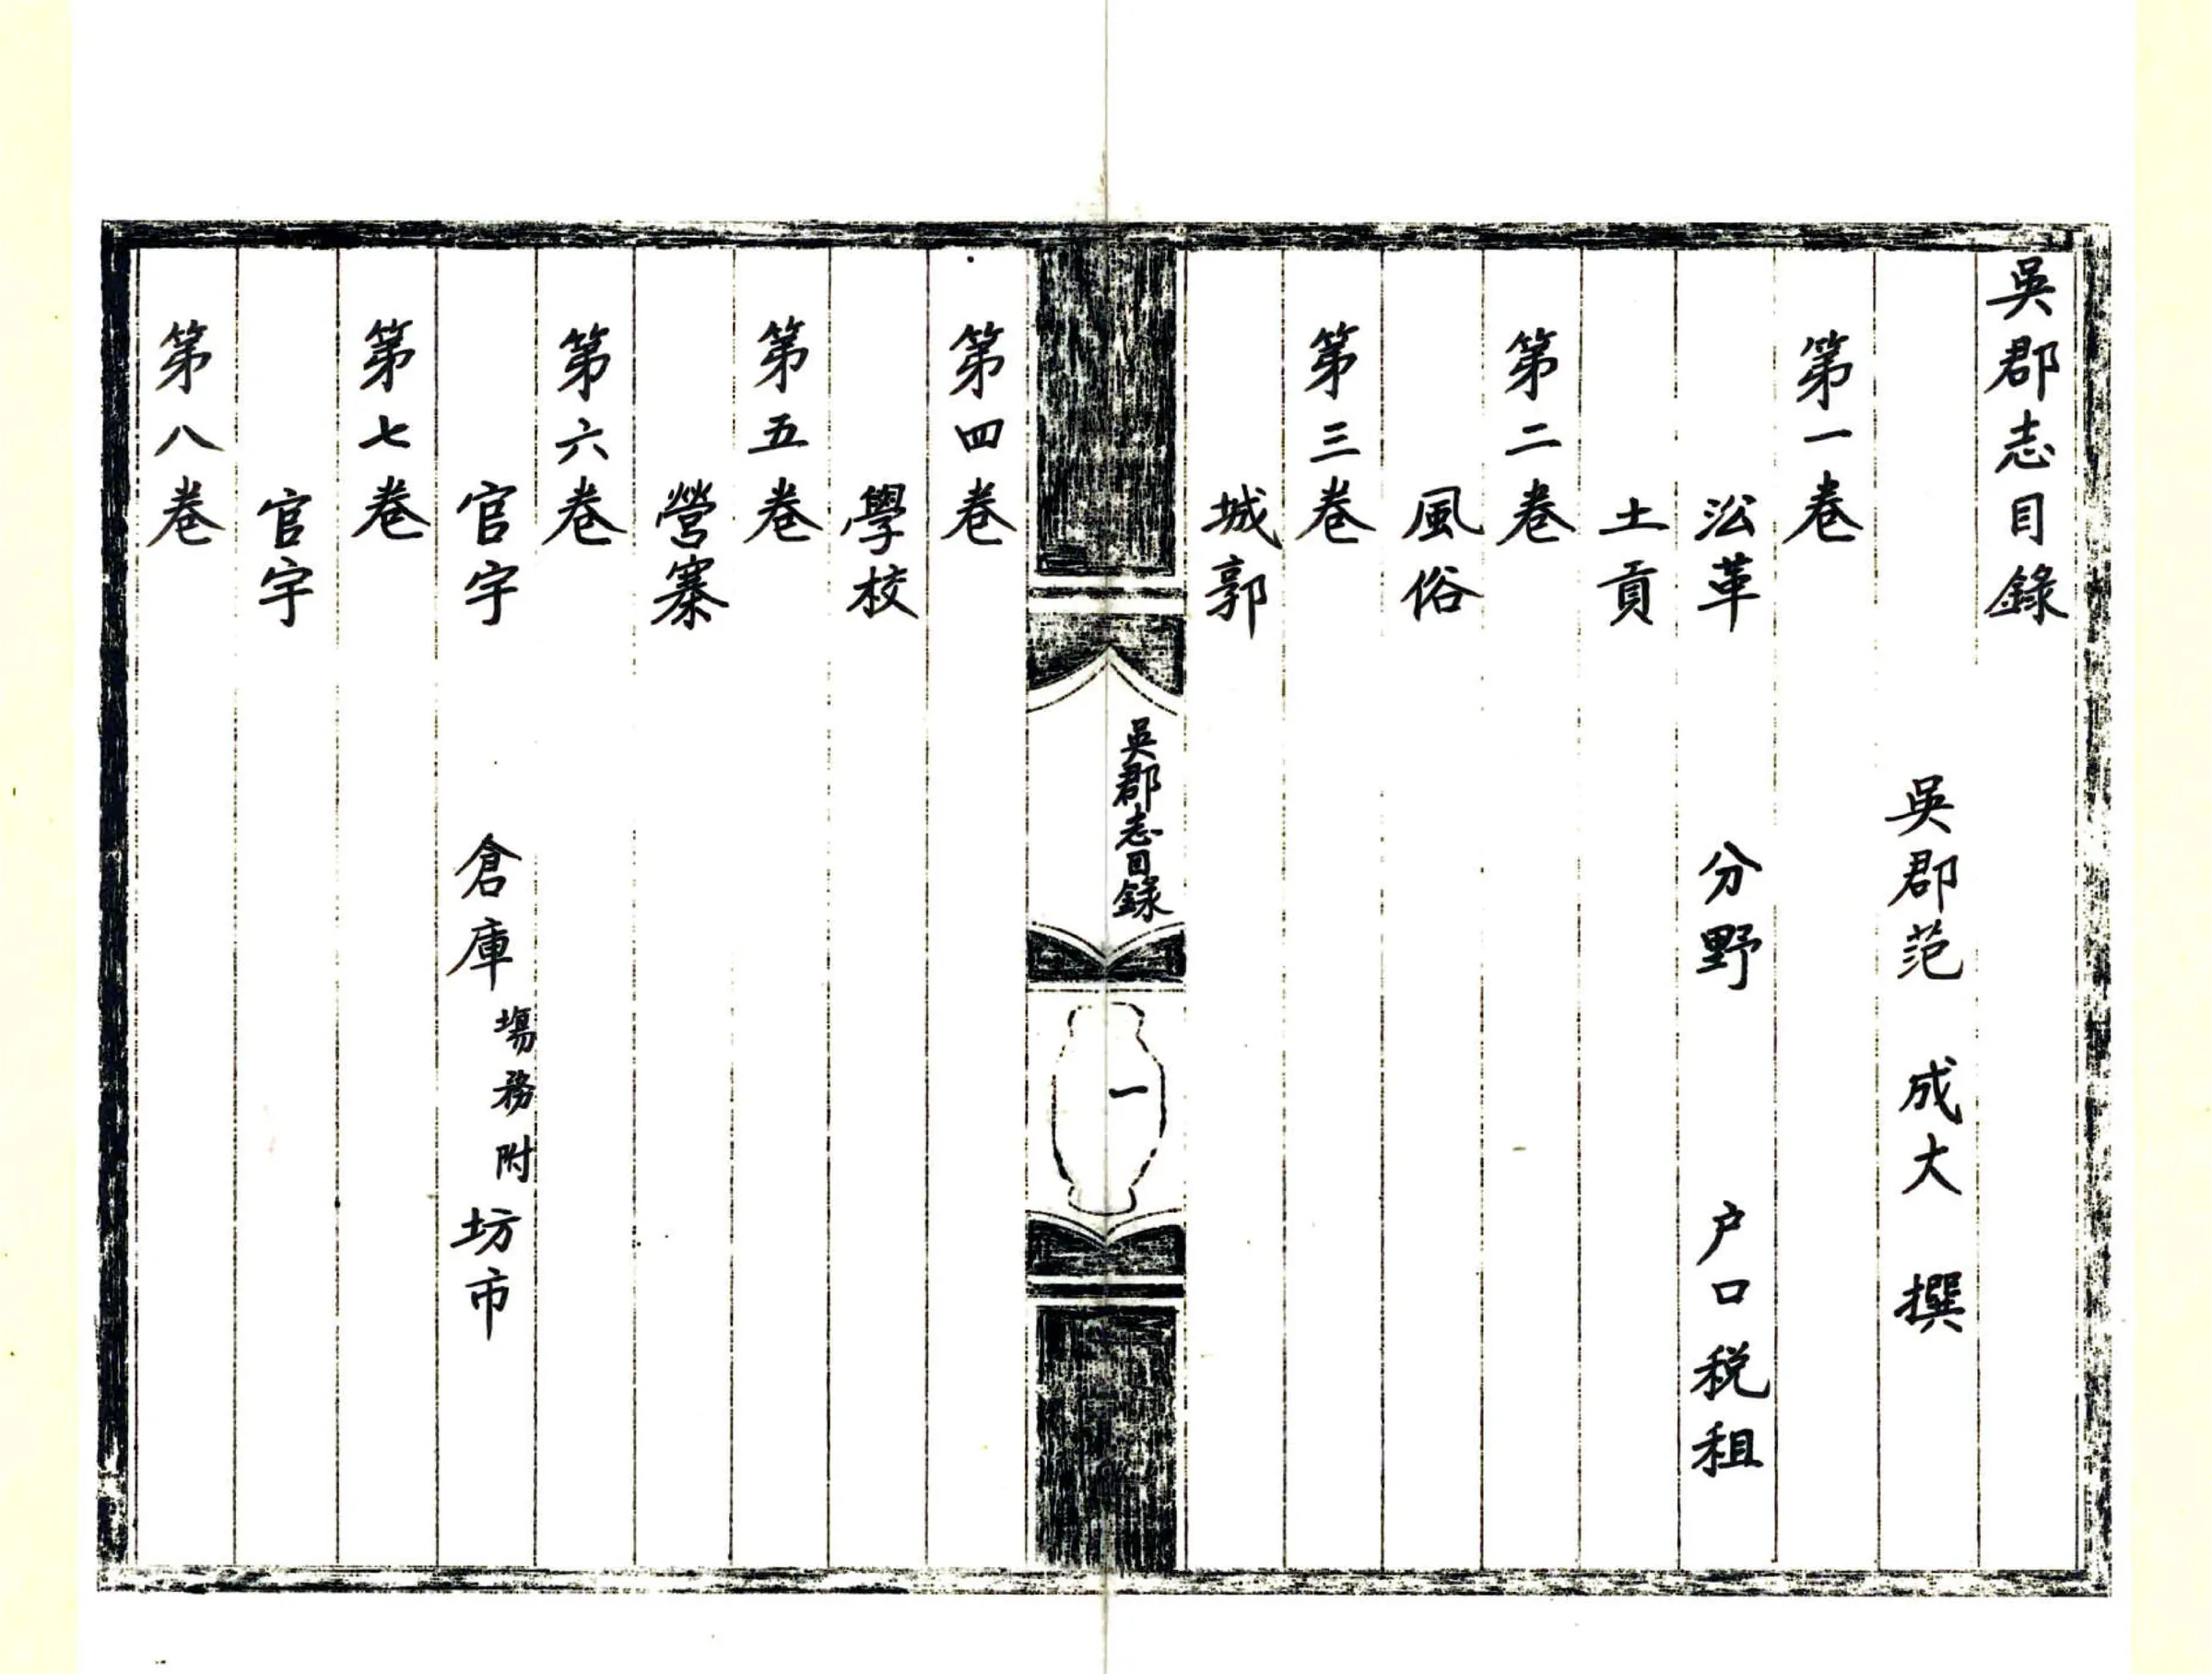 吳郡志目錄
吳郡范 成大 撰
第一卷
沿革 分野 户口税租
土貢
第二卷
風俗
第三卷
城郭
吳郡志目錄
一
第四卷
學校
第五卷
營寨
第六卷
官宇 倉庫 場務附 坊市
第七卷
官宇
第八卷